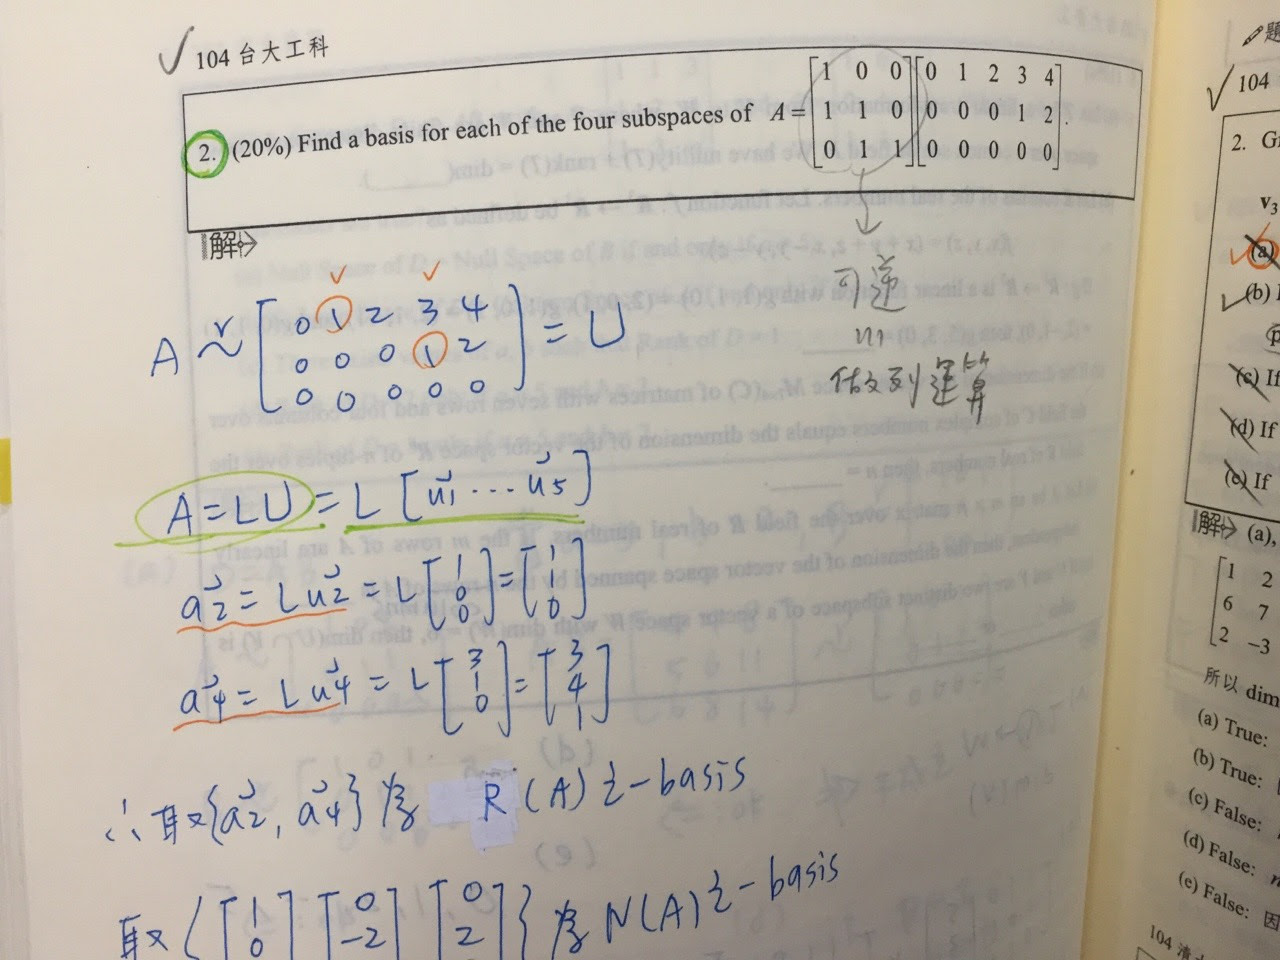 ✓ 104 台大工科
2. (20%) Find a basis for each of the four subspaces of A = [1 0 0; 1 1 0; 0 1 1] [0 1 2 3 4; 0 0 0 1 2; 0 0 0 0 0].
解
可逆
做列運算
A ~ʳ [0 1 2 3 4; 0 0 0 1 2; 0 0 0 0 0] = U
A = LU = L [u1 ... u5]
a2 = L u2 = L [1; 0; 0] = [1; 1; 0]
a4 = L u4 = L [3; 1; 0] = [3; 4; 1]
∴ 取 {a2, a4} 為 R(A) 之一 basis
取 { [1; 0 [0; -2 [0; 2 } 為 N(A) 之一 basis
104
2. G
v3
(a)
(b) I
(c) If
(d) If
(e) If
解 (a),
1 2
6 7
2 −3
所以 dim
(a) True:
(b) True:
(c) False:
(d) False:
(e) False: 因
104 清